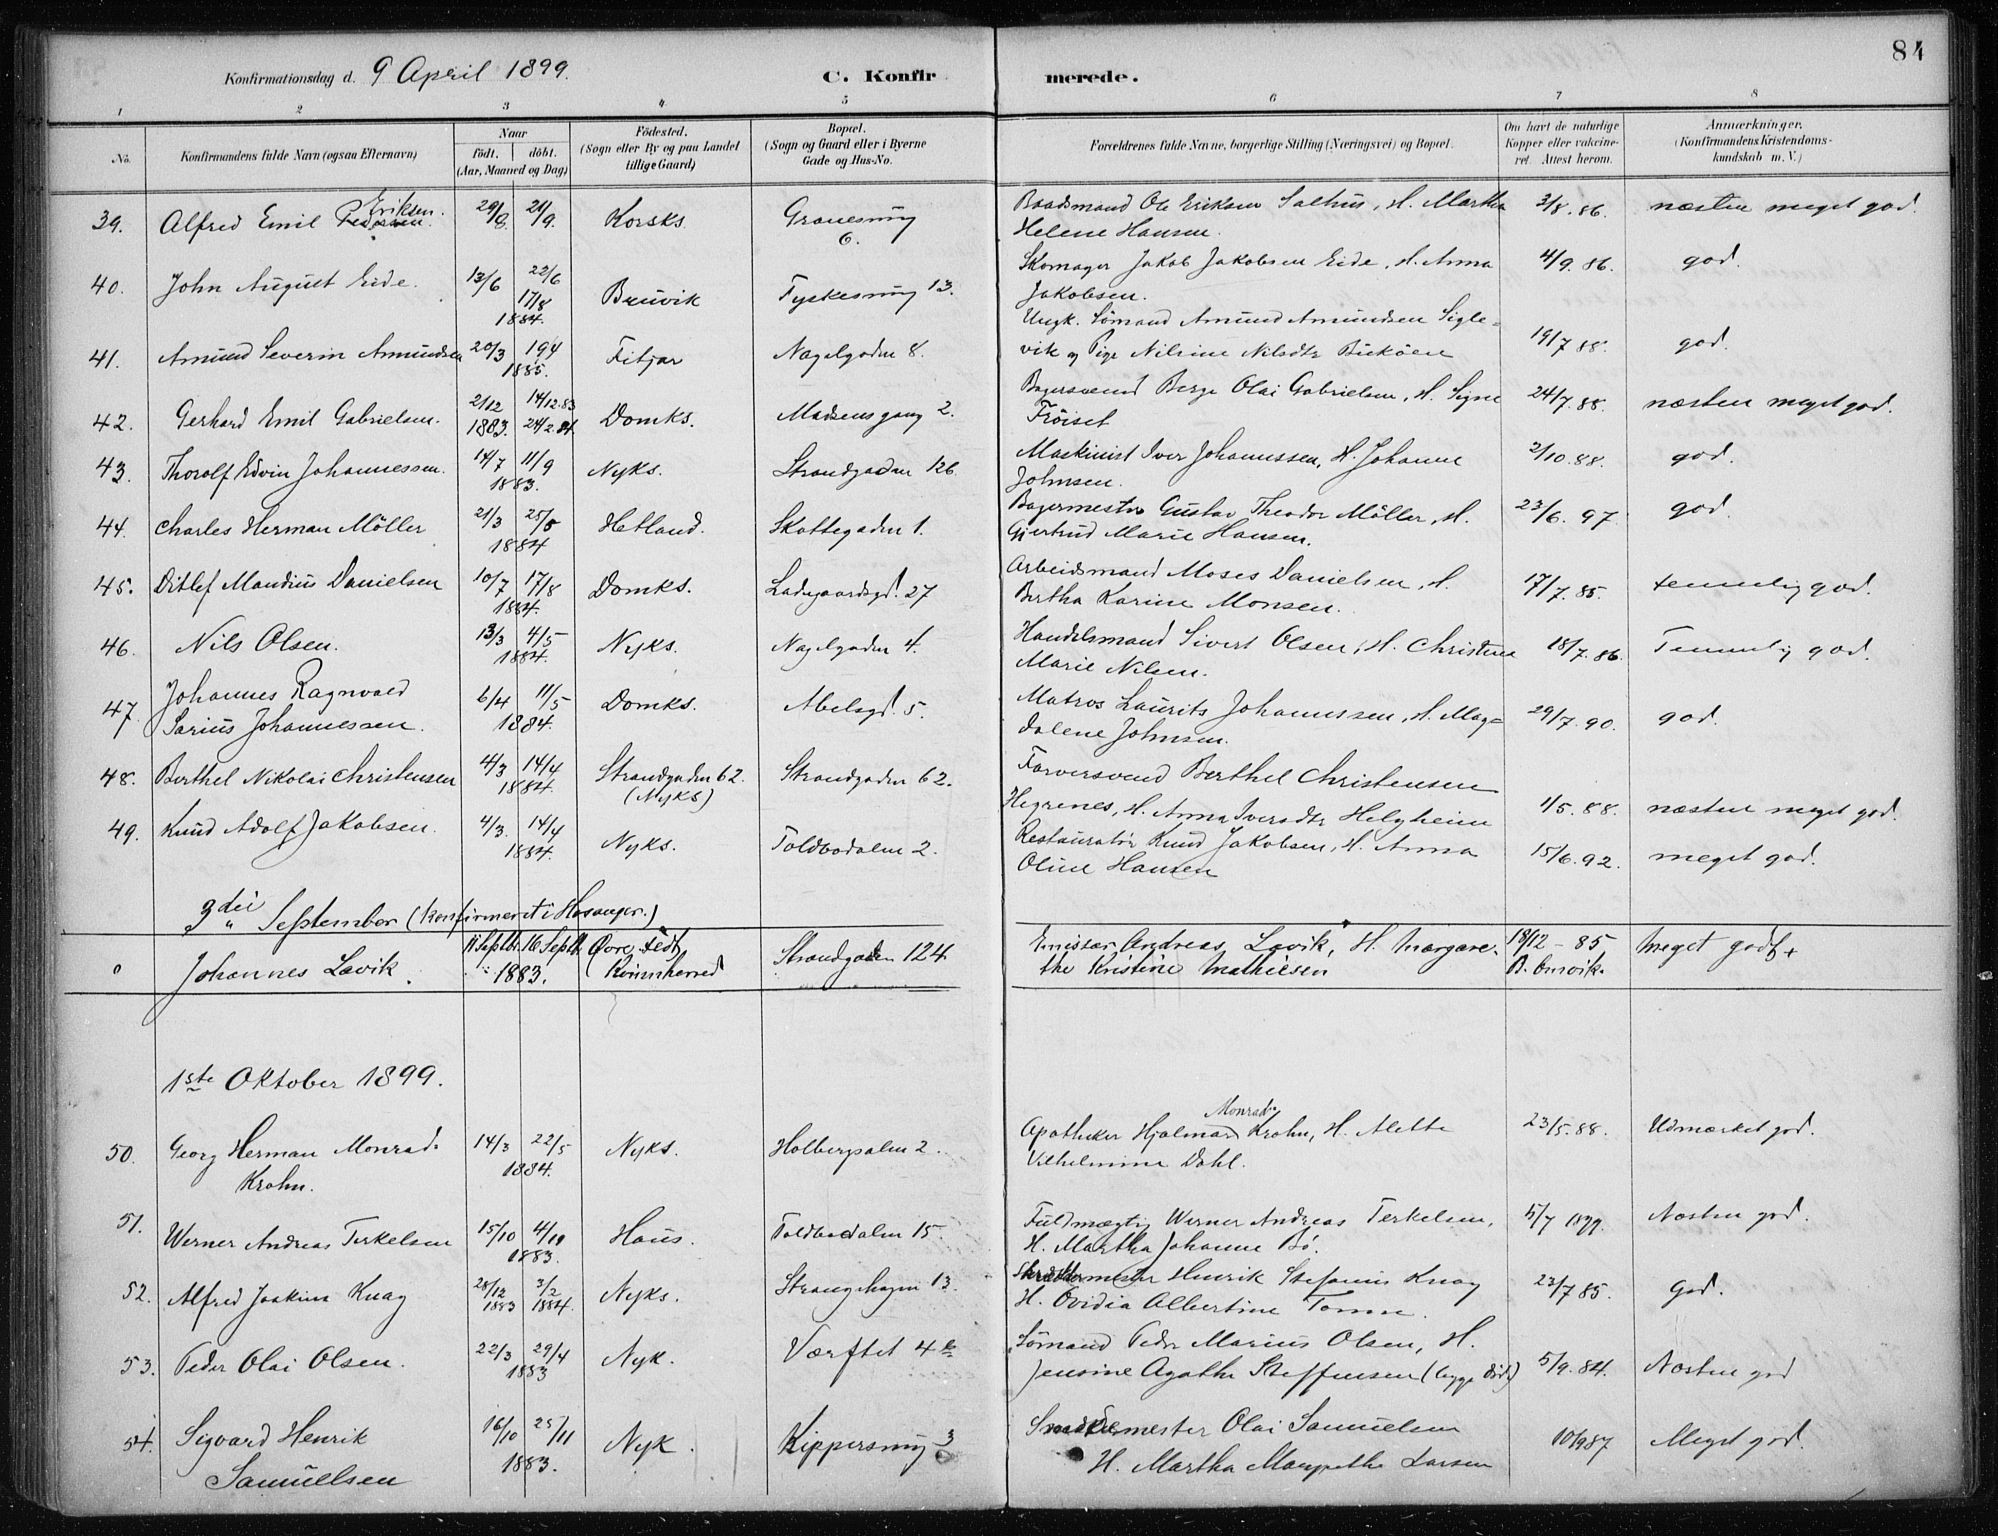 84
Konfirmationsdag d. 9 April 1899. C. Konfirmerede.
1 2 3 4 5 6 7 8
No. Konfirmandens fulde Navn (ogsaa Efternavn) Naar født. døbt. (Aar, Maaned og Dag) Fødested. (Sogn eller By og paa Landet tillige Gaard) Bopæl. (Sogn og Gaard eller i Byerne Gade og Hus-No. Forældrenes fulde Navne, borgerlige Stilling (Næringsvei) og Bopæl. Om havt de naturlige Kopper eller vaccineret. Attest herom. Anmærkninger. (Konfirmandens Kristendomskundskab m. V.)
39. Alfred Emil Pedersen Eriksen. 29/8 21/9. Korsks. 6. Baadsmand Ole Eriksen Salhus, H. Martha 3/8.86. næsten meget god.
Helene Hansen.
40. John August Eide. 13/6 22/6 17/8 1884. Bruvik Tyskesmug 13. Skomager Jakob Jakobsen Eide, H. Anna 4/9.86. god.
Jakobsen.
41. Amund Severin Amundsen 20/3 19/4 1885. Fitjar Nagelgaden 8. Ungk. Sømand Amund Amundsen Sigle-
vik og Pige Nilsine Nilsdtr 19/7 88. god.
42. Gerhard Emil Gabrielsen. 2/12 1883. 14/12.83 24/2.84 Domks. Madsensgang 2. Bagersvend Berge Olai Gabrielsen, H. Signe 24/7.88. næsten meget god.
Frøiset
43. Thorolf Edvin Johannessen. 14/7 11/9 1883. Nyks. Strandgaden 126 Maskinist Iver Johannssen, H. Johanne 2/10.88. god.
Johnsen.
44. Charles Herman Möller 21/3 25/5 1884 Hetland. Skottegaden 1. Bagermester Gustav Theodor Möller, H. 23/6.97. god
Gjertrud Marie Hansen.
45. Ditlef Mandius Danielsen 10/7 17/8 1884. Domks. Ladegaardsgd. 27 Arbeidsmand Moses Danielsen, H. 17/7.85. temmelig god.
Bertha Karine Monsen.
46. Nils Olsen. 13/3 4/5 1884. Nyks. Nagelgaden 4. Handelsmand Sivert Olsen, H. Christine 18/7.86. Temmelig god.
Marie Nilsen.
47. Johannes Ragnvald
Sarius Johannessen. 6/4 11/5 1884. Domks. Abelsgd. 5. Matros Laurits Johannssen, H. Mag- 29/7.90. god.
dalene Johnsen.
48. Berthel Nikolai Christensen 4/3 14/4 1884. Strandgaden 62. (Nyks) Strandgaden 62. Farversvend Berthel Christensen
Hegrenes, H. Anna Iversdtr Helgheim 1/5.88. næsten meget god.
49. Knud Adolf Jakobsen. 4/3. 14/4 1884. Nyks. Toldbodalm 2. Restauratør Knud Jakobsen, H. Anna 15/6.92. meget god.
Oline Hansen
3die September (konfirmeret i Hosanger.)
Johannes Lavik. 11 Septbr. 16 Septbr. 1883. Øvre Tedt, Kvinnherred Strandgaden 124 Emissær Andreas Lavik, H. Margare- 18/12 - 85 Meget godt +
the Kristine Mathiesen B. Omvik.
1ste Oktober 1899.
50. Georg Herman Monrad-
Krohn. 14/3 22/5 1884. Nyks. Holbergsalm 2. Apotheker Hjalmar Monrad- Krohn, H. Alette 23/5.88. Udmærket god.
Vilhelmine Dahl.
51. Werner Andreas Terkelsen 15/10 4/11 1883. Haus. Toldbodalm 15. Fuldmægtig Werner Andreas Terkelsen, 5/7 1899. Næsten god.
H. Martha Johanne Bö.
52. Alfred Joakim Knag 28/12 1883 3/2 1884. Nyks. Strangehagen 13. Skræddermester Henrik Stefanus Knag 23/7 85. god.
H. Ovidia Albertine Tomne.
53. Peder Olai Olsen. 22/3 29/4 1883 Nyk. Værftet 4 Sømand Peder Marius Olsen, H.
Jensine Agathe Steffensen (begge død.) 5/9.84. Næsten god
54. Sigvard Henrik
Samuelsen 16/10 25/11 1883. Nyk. Kippersmug 3 Olai Samuelsen 10/9 87 Meget god.
H. Martha Margrethe Larsen